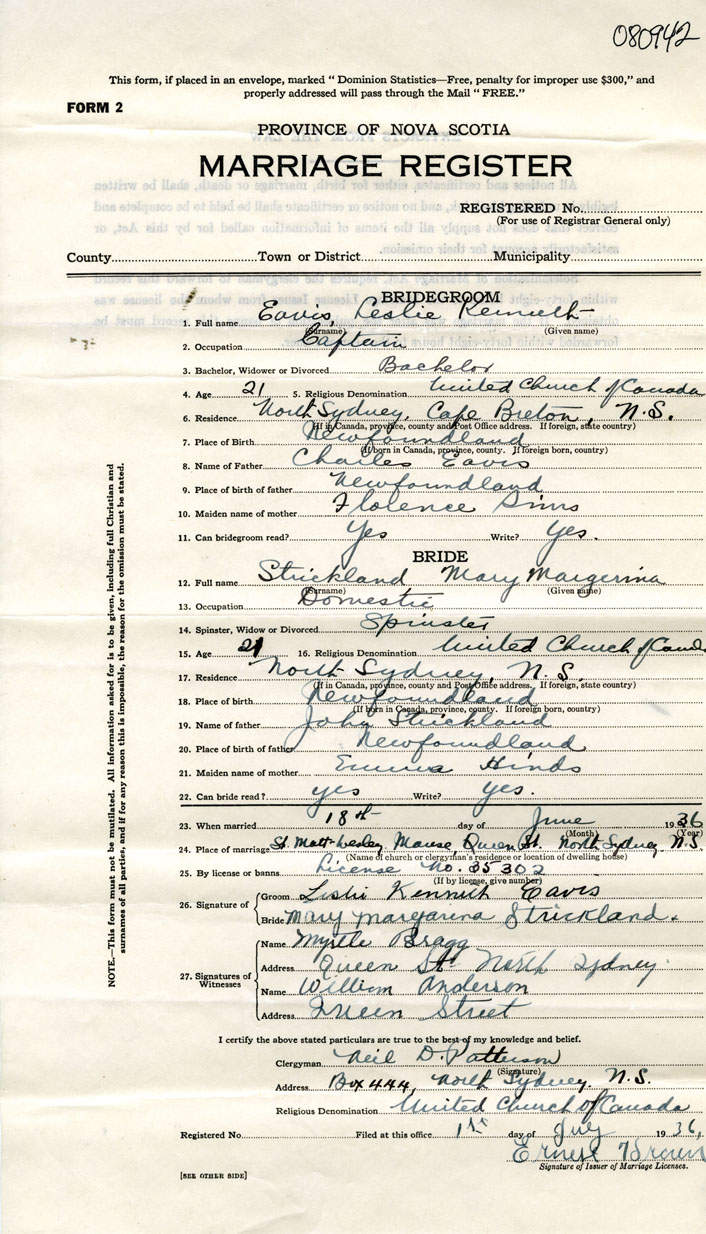 080942
This form, if placed in an envelope, marked " Dominion Statistics—Free, penalty for improper use $300," and
properly addressed will pass through the Mail " FREE."
FORM 2
PROVINCE OF NOVA SCOTIA
MARRIAGE REGISTER
REGISTERED No.
(For use of Registrar General only)
County Town or District Municipality
BRIDEGROOM
1. Full name Eavis, Leslie Kenneth
(Surname) (Given name)
2. Occupation Captain
3. Bachelor, Widower or Divorced Bachelor
4. Age 21 5. Religious Denomination United Church of Canada
6. Residence North Sydney, Cape Breton, N.S.
(If in Canada, province, county and Post Office address. If foreign, state country)
7. Place of Birth Newfoundland
(If born in Canada, province, county. If foreign born, country)
8. Name of Father Charles Eavis
9. Place of birth of father Newfoundland
10. Maiden name of mother Florence Sims
11. Can bridegroom read? Yes Write? Yes.
BRIDE
12. Full name Strickland Mary Margerina
(Surname) (Given name)
13. Occupation Domestic
14. Spinster, Widow or Divorced Spinster
15. Age 21 16. Religious Denomination United Church of Canada
17. Residence North Sydney, N.S.
(If in Canada, province, county and Post Office address. If foreign, state country)
18. Place of birth Newfoundland
(If born in Canada, province, county. If foreign born, country)
19. Name of father John Strickland
20. Place of birth of father Newfoundland
21. Maiden name of mother Emma Hinds
22. Can bride read? yes Write? yes.
23. When married 18th day of June 1936
(Month) (Year)
24. Place of marriage St. Matt-Wesley Manse, Queen St. North Sydney, N.S.
(Name of church or clergyman's residence or location of dwelling house)
25. By license or banns License No. 35302
(If by license, give number)
26. Signature of Groom Leslie Kenneth Eavis
Bride Mary Margarina Strickland.
27. Signatures of Witnesses Name Myrtle Bragg
Address Queen St North Sydney
Name William Anderson
Address Queen Street
I certify the above stated particulars are true to the best of my knowledge and belief.
Clergyman Neil D. Patterson
(Signature)
Address Box 444, North Sydney, N.S.
Religious Denomination United Church of Canada
Registered No. Filed at this office 1st day of July 1936,
Ernest Brown
Signature of Issuer of Marriage Licenses.
[SEE OTHER SIDE]
NOTE.—This form must not be mutilated. All information asked for is to be given, including full Christian and
surnames of all parties, and if for any reason this is impossible, the reason for the omission must be stated.